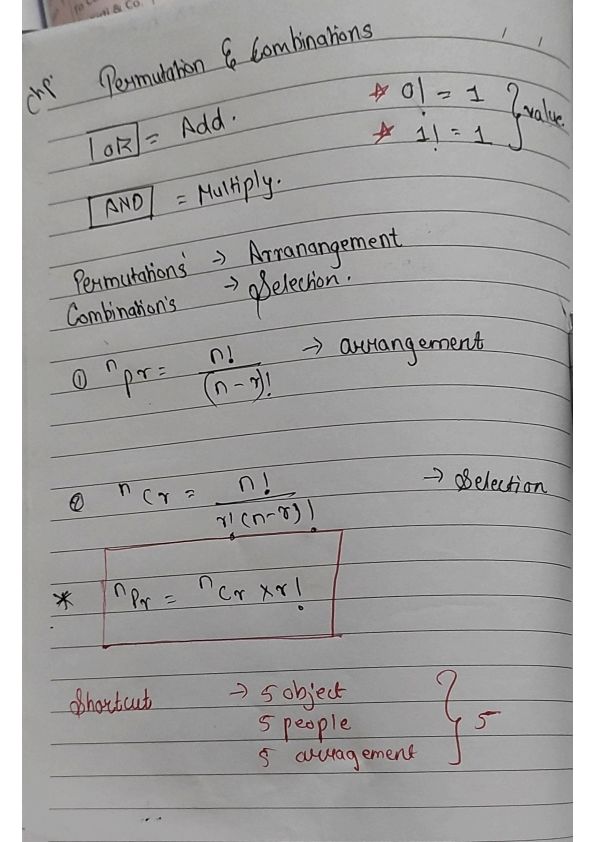 & Co.
Chp. Permutation & Combinations
OR = Add.
☆ 0! = 1
☆ 1! = 1 } value.
AND = Multiply.
Permutations → Arranangement
Combination's → Selection.
① nPr = n! / (n-r)! → arrangement
② nCr = n! / r!(n-r)! → Selection
* nPr = nCr × r!
Shortcut → 5 object
5 people
5 arragement } 5